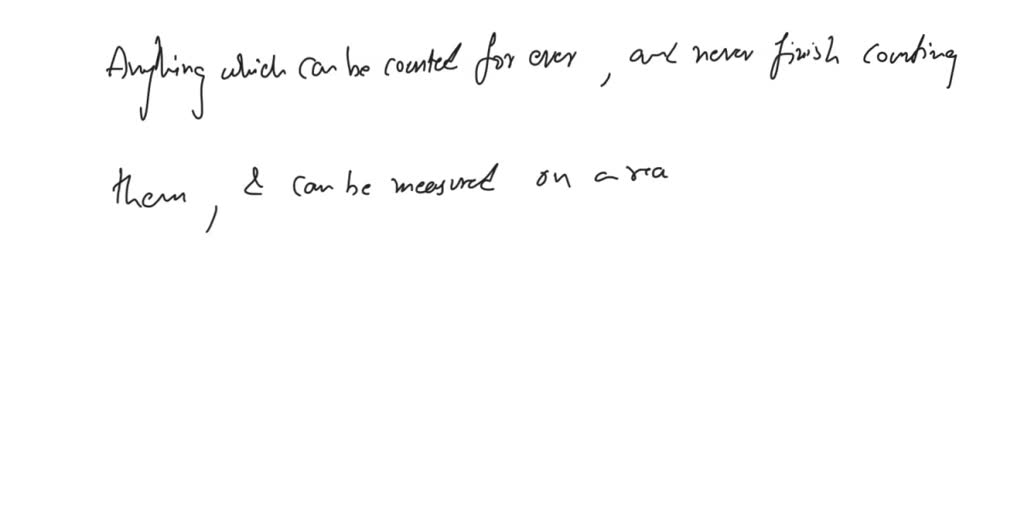 Anything which can be counted for ever, and never finish counting
them, & can be measured on area